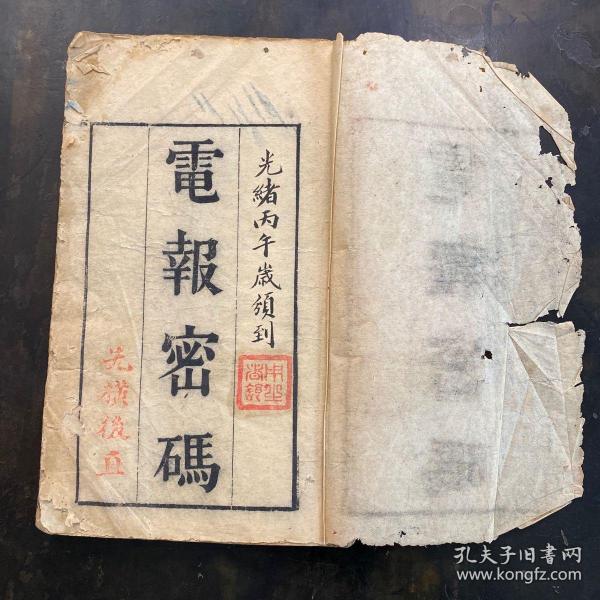 光緒丙午歲領到
電報密碼
先橫後直
孔夫子旧书网
www.kongfz.com